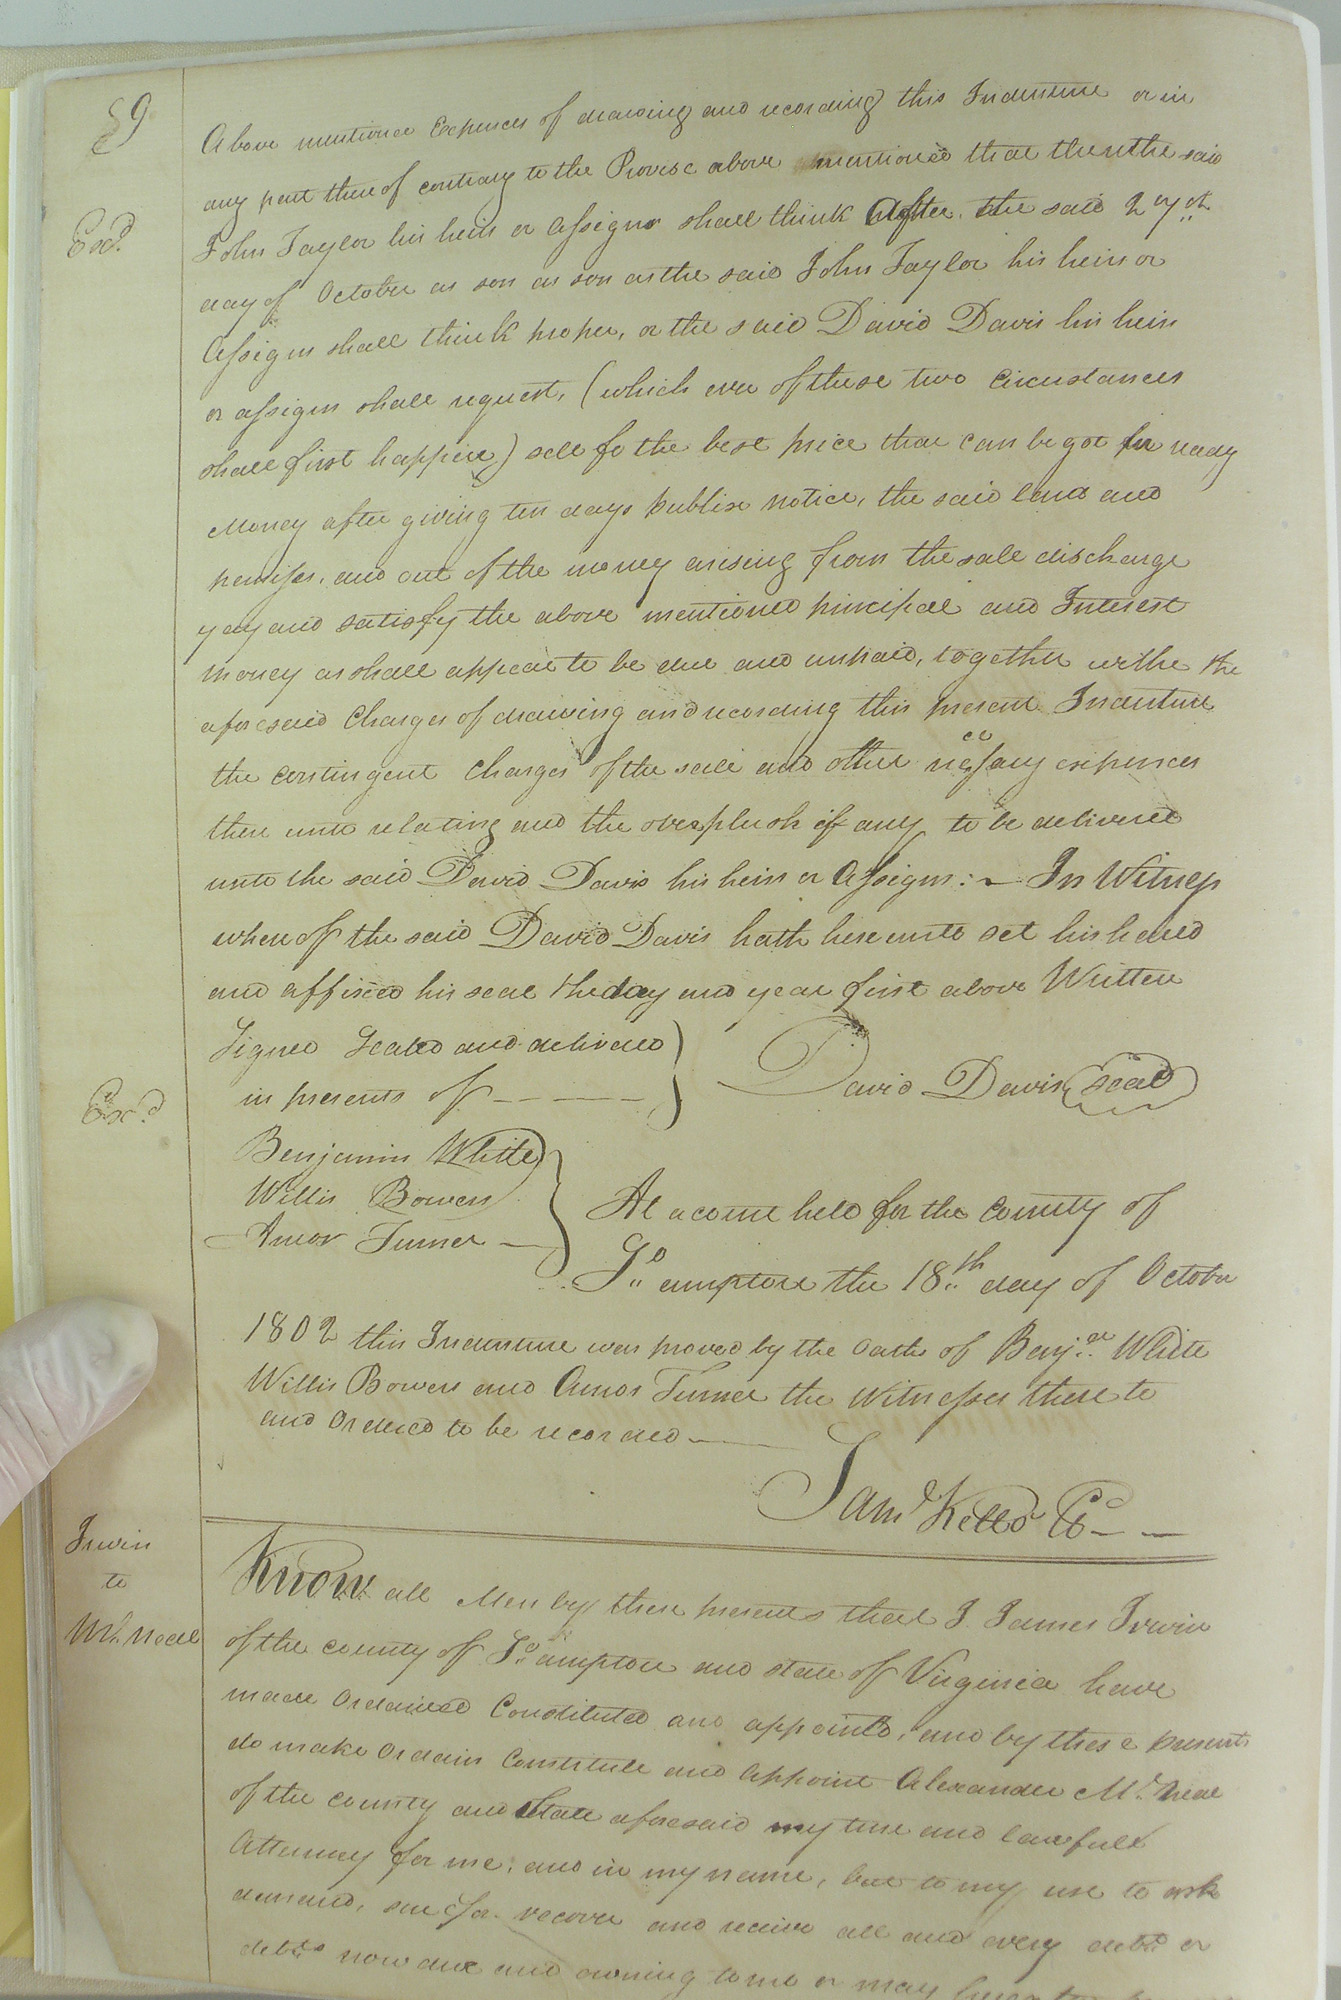 89
Above mentioned Expences of drawing and recording this Indenture or in
any part thereof contrary to the Proviso above mentioned that then the said
Exd.
John Taylor his heirs or assigns shall think After the said
day of October as son as son as the said John Taylor his heirs or
Assigns shall think proper, or the said David Davis his heirs
or assigns shall request, (which ever of these two Circustances
shall first happen) sell fo the best price that can be got for ready
Money after giving ten days publick notice, the said land and
premises, and out of the money arising from the sale discharge
pay and satisfy the above mentioned principal and Interest
money as shall appear to be due and unpaid, together withe the
aforesaid Charges of drawing and recording this present Indenture
the contingent Charges of the sale and other necessary expences
there unto relating and the overplush if any to be delivered
unto the said David Davis his heirs or Assigns:— In Witness
whereof the said David Davis hath hereunto set his hand
and affixed his seal the day and year first above Written
Signed Sealed and delivered
in presents of — — — —
David Davis seal
Exd.
Benjamin White
Willis Bowers
Amos Turner
At a court held for the County of
So.ampton the 18th day of October
1802 this Indenture was proved by the oaths of Benja. White
Willis Bowers and Amos Turner the Witnesses there to
and Ordered to be recorded —
Saml Kello CC — —
Irwin
to
Mc.Neal
Know all Men by these presents that I James Irwin
of the county of So.ampton and state of Virginia have
made Ordained Constituted and appointd, and by these presents
do make Ordain Constitute and Appoint Alexander Mc.Neal
of the county and State aforesaid my true and lawfull
Attorney for me, and in my name, but to my use to ask
demand, sue for recover and receive all and every debt or
debts now due and owning to me or may